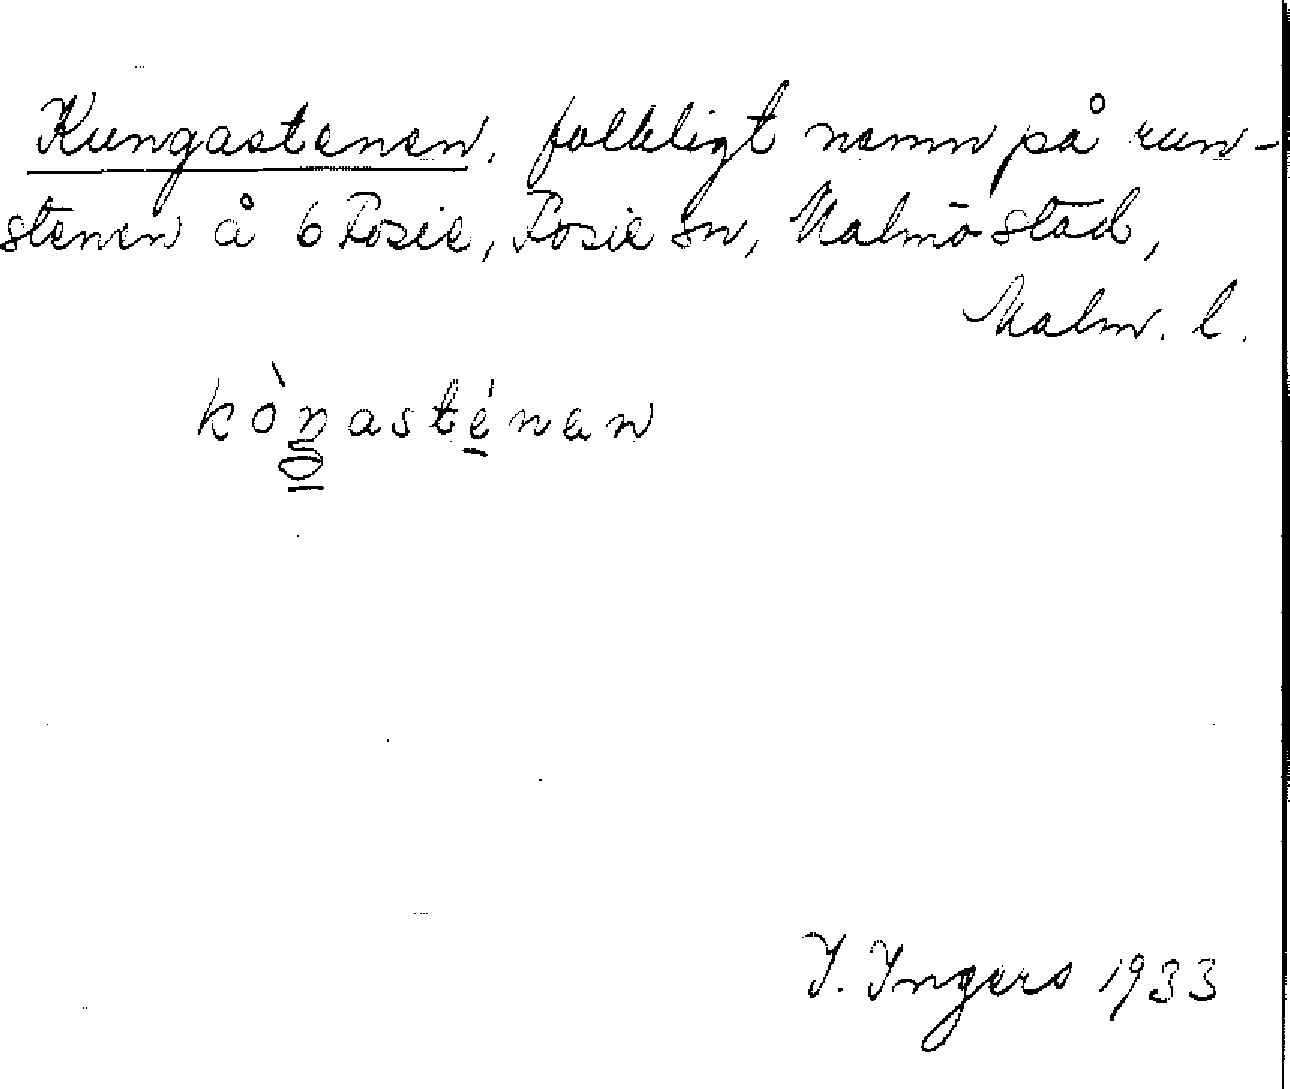 Kungastenen, folkligt namn på run-
stenen å 6 Fosie, Fosie sn, Malmö stad,
Malm. l.
kòŋasténan
I. Ingers 1933